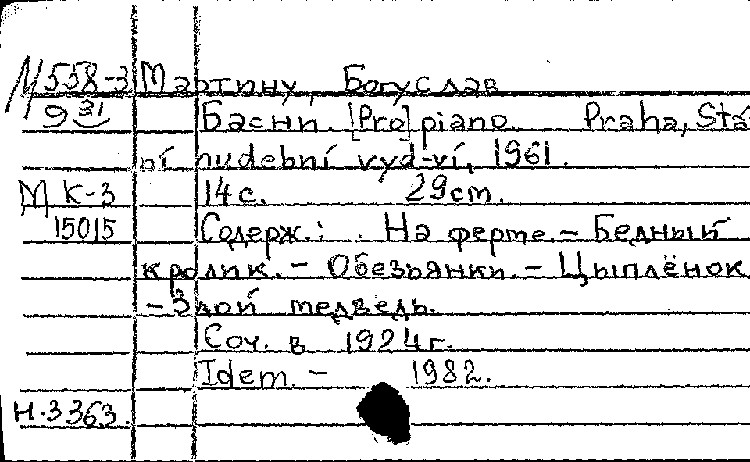 М558-3 Мартину, Богуслав
9 31 Басни. [Pro] piano. Praha, Stá
ní hudební vyd-ví, 1961.
М К-3 14 с. 29 cm.
15015 Содерж.: На ферме. - Бедный
кролик. - Обезьянки. - Цыплёнок
- Злой медведь.
Соч. в 1924 г.
Idem. - 1982.
Н.3363